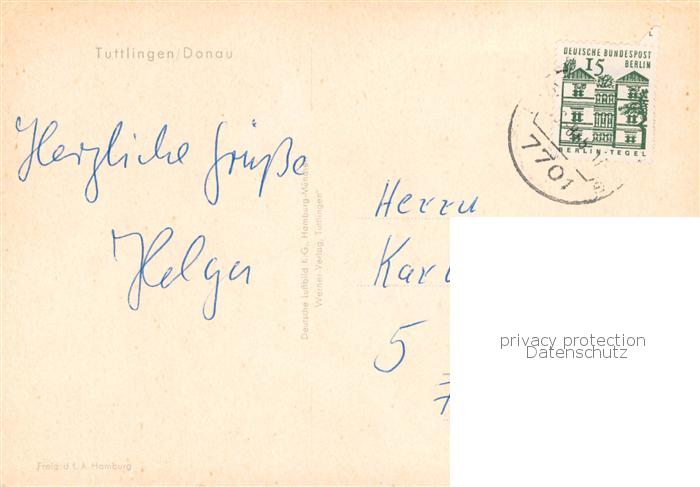 Tuttlingen/Donau
DEUTSCHE BUNDESPOST
15 BERLIN
BERLIN-TEGEL
7701
Herzliche Grüße
Helga
Herrn
5
privacy protection
Datenschutz
Deutsche Luftbild K.G., Hamburg-München
Werner Verlag, Tuttlingen"
Freig. d. L. A. Hamburg